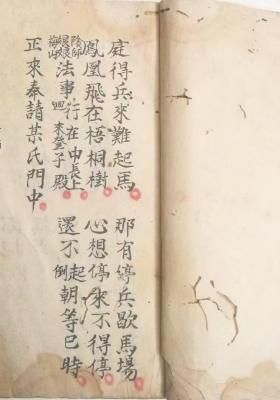 庭得兵來難起馬 那有停兵歇馬場
鳳凰飛在梧桐樹 心想停來不得停
陰師 梅山 法事行在中長上 來登子殿 還不起倒朝等巳時
正來奉請某氏門中